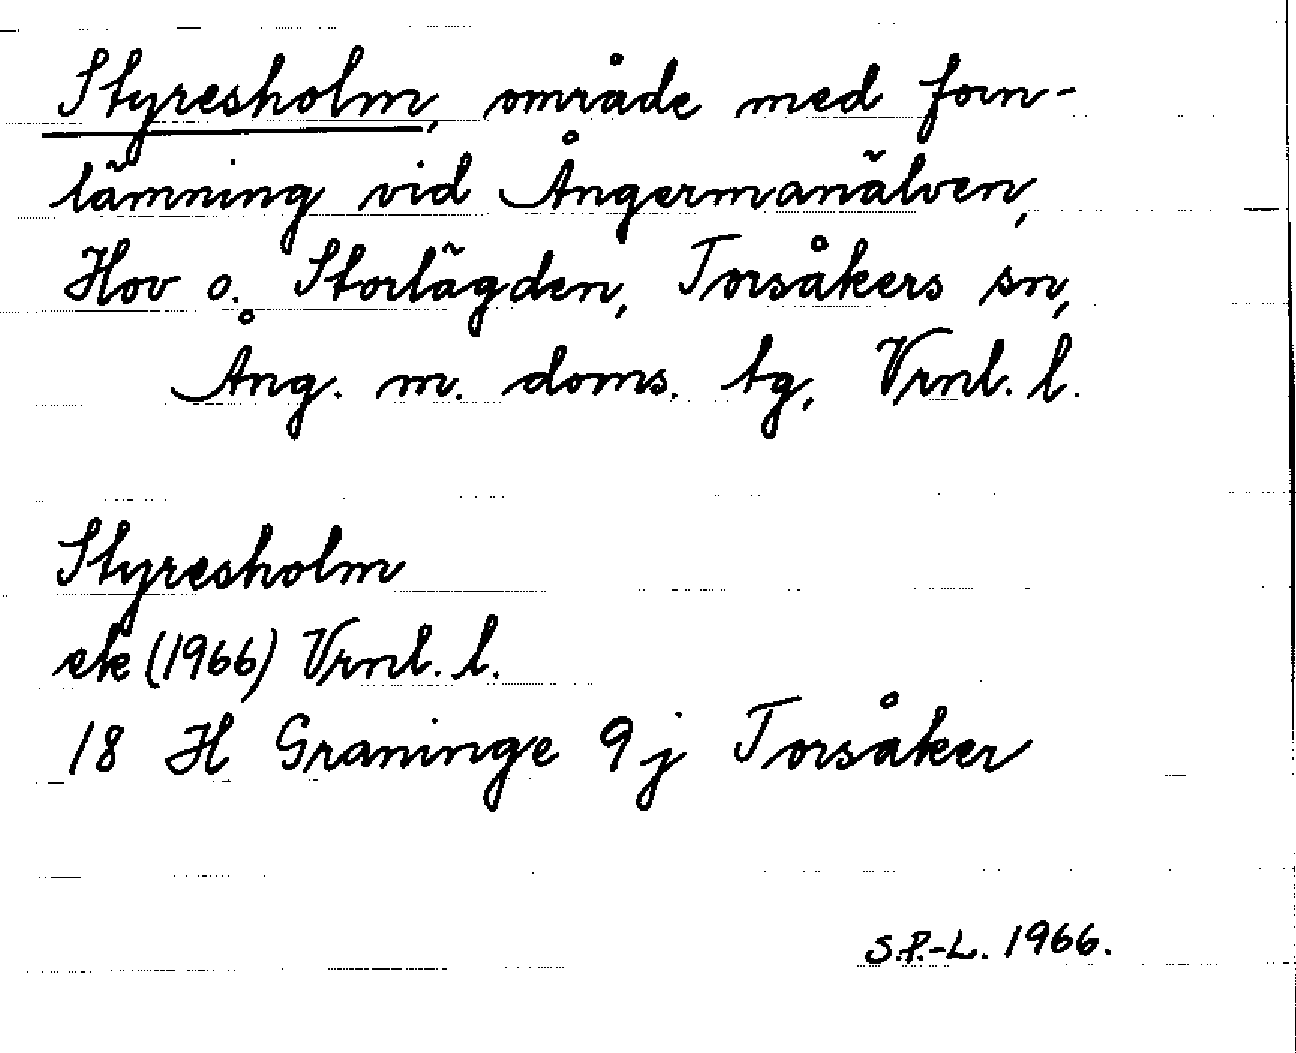 Styresholm, område med forn-
lämning vid Ångermanälven,
Hov o. Storlägden, Torsåkers sn,
Ång. m. doms. tg, Vrnl. l.
Styresholm
ek (1966) Vrnl. l.
18 H Graninge 9 j Torsåker
S.P.-L. 1966.